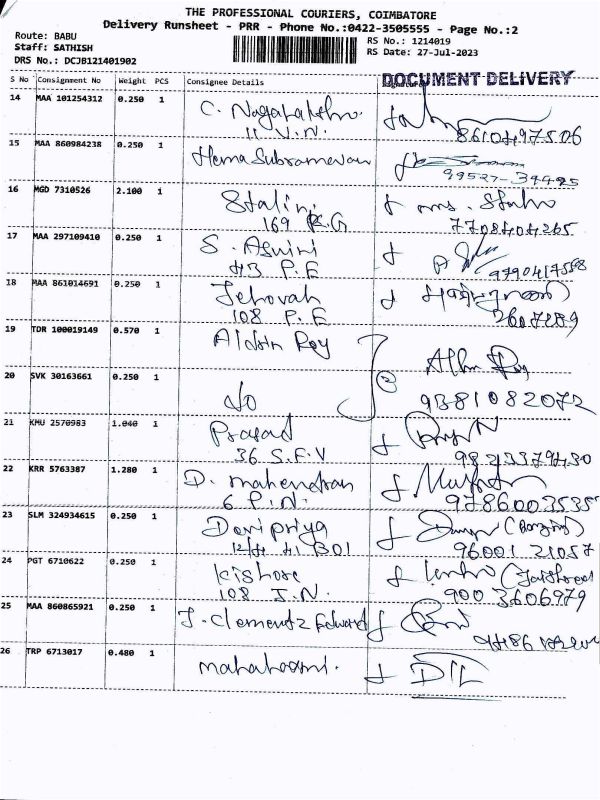 THE PROFESSIONAL COURIERS, COIMBATORE
Delivery Runsheet - PRR - Phone No.:0422-3505555 - Page No.:2
Route: BABU
RS No.: 1214019
Staff: SATHISH
RS Date: 27-Jul-2023
DRS No.: DCJB121401902
DOCUMENT DELIVERY
S No Consignment No Weight PCS Consignee Details
14 MAA 101254312 0.250 1
11 V.N. 8610497506
15 MAA 860984238 0.250 1 Hema Subramanian
99527-39495
16 MGD 7310526 2.100 1 Stalin
169 K.G 7708404265
17 MAA 297109410 0.250 1 S. Aswini
43 P.E 9790417558
18 MAA 861014691 0.250 1 Jehovah
108 P.E
19 TDR 100019149 0.570 1 Roy
20 SVK 30163661 0.250 1 do 2 9381082072
21 KMU 2570983 1.040 1 Prasad
36 S.F.V
22 KRR 5763387 1.280 1 D. mahendran
6 P.N. 9786003535
23 SLM 324934615 0.250 1 Devi priya
96001 21057
24 PGT 6710622 0.250 1 Kishore
108 J.N. 900 3606979
25 MAA 860865921 0.250 1 J. Clementz Edward
26 TRP 6713017 0.480 1 mahalaxmi. DTL